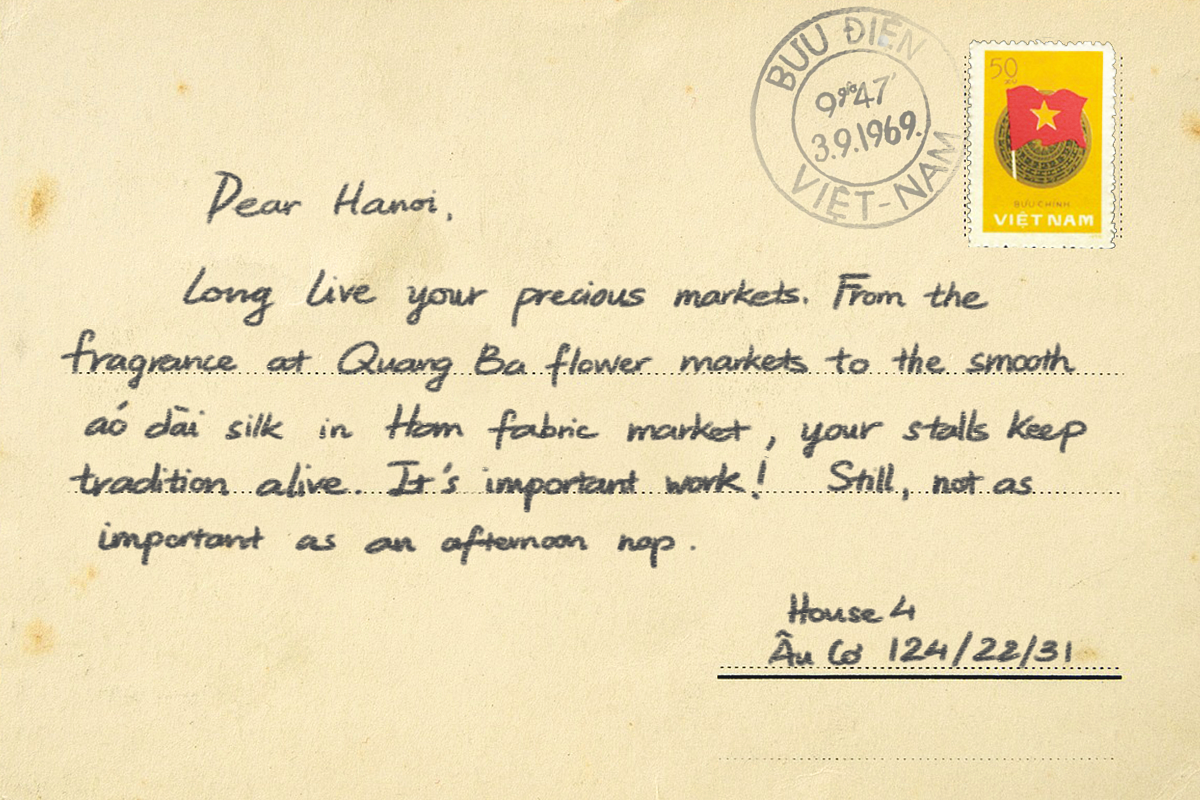 BƯU ĐIỆN
9giờ47'
3.9.1969.
VIỆT-NAM
50
XU
BƯU CHÍNH
VIỆT NAM
Dear Hanoi,
Long live your precious markets. From the
fragrance at Quang Ba flower markets to the smooth
aó dài silk in Hom fabric market, your stalls keep
tradition alive. It's important work! Still, not as
important as an afternoon nap.
House 4
Âu Cơ 124/22/31